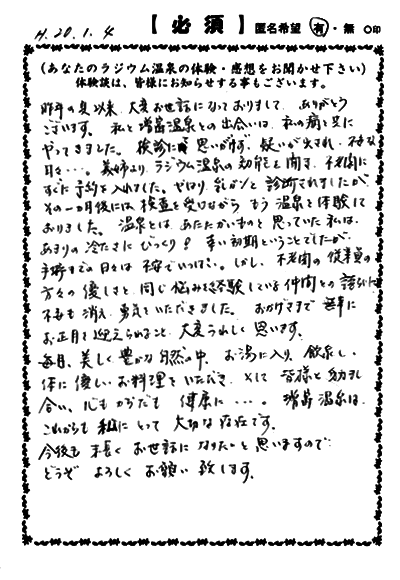 H.20.1.4 【必須】 匿名希望 有・無 ○印
(あなたのラジウム温泉の体験・感想をお聞かせ下さい)
体験談は、皆様にお知らせする事もございます。
昨年の夏以来、大変お世話になっておりまして、ありがとう
ございます。私と増富温泉との出会いは、私の病と共に
やってきました。検診で思いがけず、疑いが出され、不安な
日々・・・。義姉より、ラジウム温泉の効能を聞き、不老閣に
すぐに予約を入れました。やはり、乳がんと診断されましたが、
その一カ月後には、検査を受けながらもう温泉を体験して
おりました。温泉とは、あたたかいものと思っていた私は、
あまりの冷たさにびっくり!幸い初期ということでしたが、
手術までの日々は不安でいっぱい。しかし、不老閣の従業員の
方々の優しさと、同じ悩みを経験している仲間との語らいに
不安も消え、勇気をいただきました。おかげさまで無事に
お正月を迎えられること、大変うれしく思います。
毎月、美しく豊かな自然の中、お湯に入り、飲泉し、
体に優しいお料理をいただき、そして皆様と励まし
合い、心もからだも健康に・・・。増富温泉は、
これからも私にとって大切な存在です。
今後も末長くお世話になりたいと思いますので
どうぞよろしくお願い致します。